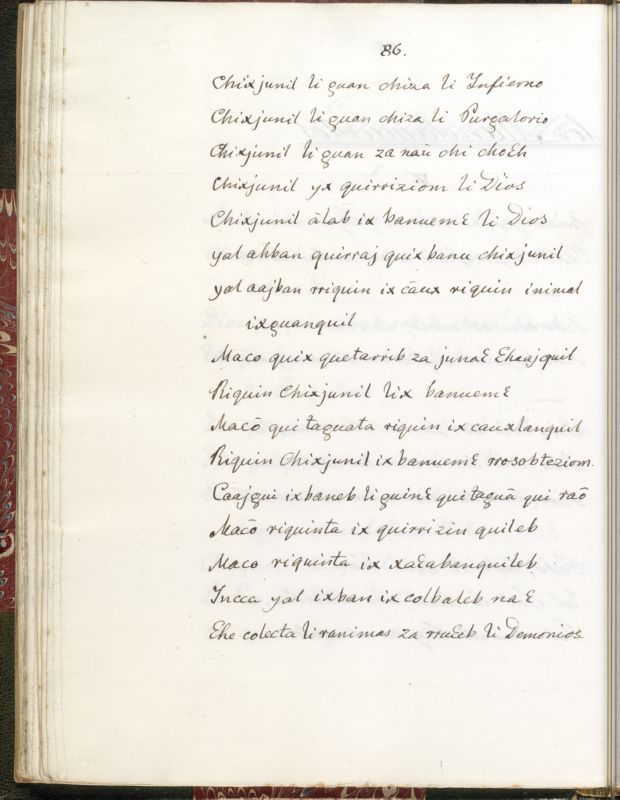 86.
Chixjunil li guan chiza li Infierno
Chixjunil li guan chiza li Purgatorio
Chixjunil li guan za naū chi choƐh
Chixjunil yx quirriziom li Dios
Chixjunil ālab ix banuemƐ li Dios
yal ahban quirraj quix banu chixjunil
yal aajban rriquin ix cāux riquin inimal
ixguanquil
Maco quix quetarrib za junaƐ Ɛhaajquil
Riquin Chixjunil lix banuemƐ
Macō qui taguata riquin ix cauxlanquil
Riquin Chixjunil ix banuemƐ rrosobteziom.
Caajgui ixbaneb li guinƐ qui taguā qui raō
Macō riquinta ix quirrizin quileb
Maco riquinta ix xaƐabanquileb
Incca yal ixban ix colbaleb naƐ
Ɛhe colecta li ranimas za rruƐeb li Demonios